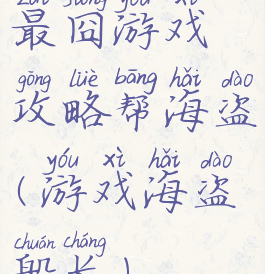 zuì jiǒng yóu xì
最囧游戏
gōng lüè bāng hǎi dào
攻略帮海盗
yóu xì hǎi dào
(游戏海盗
chuán cháng
船长)